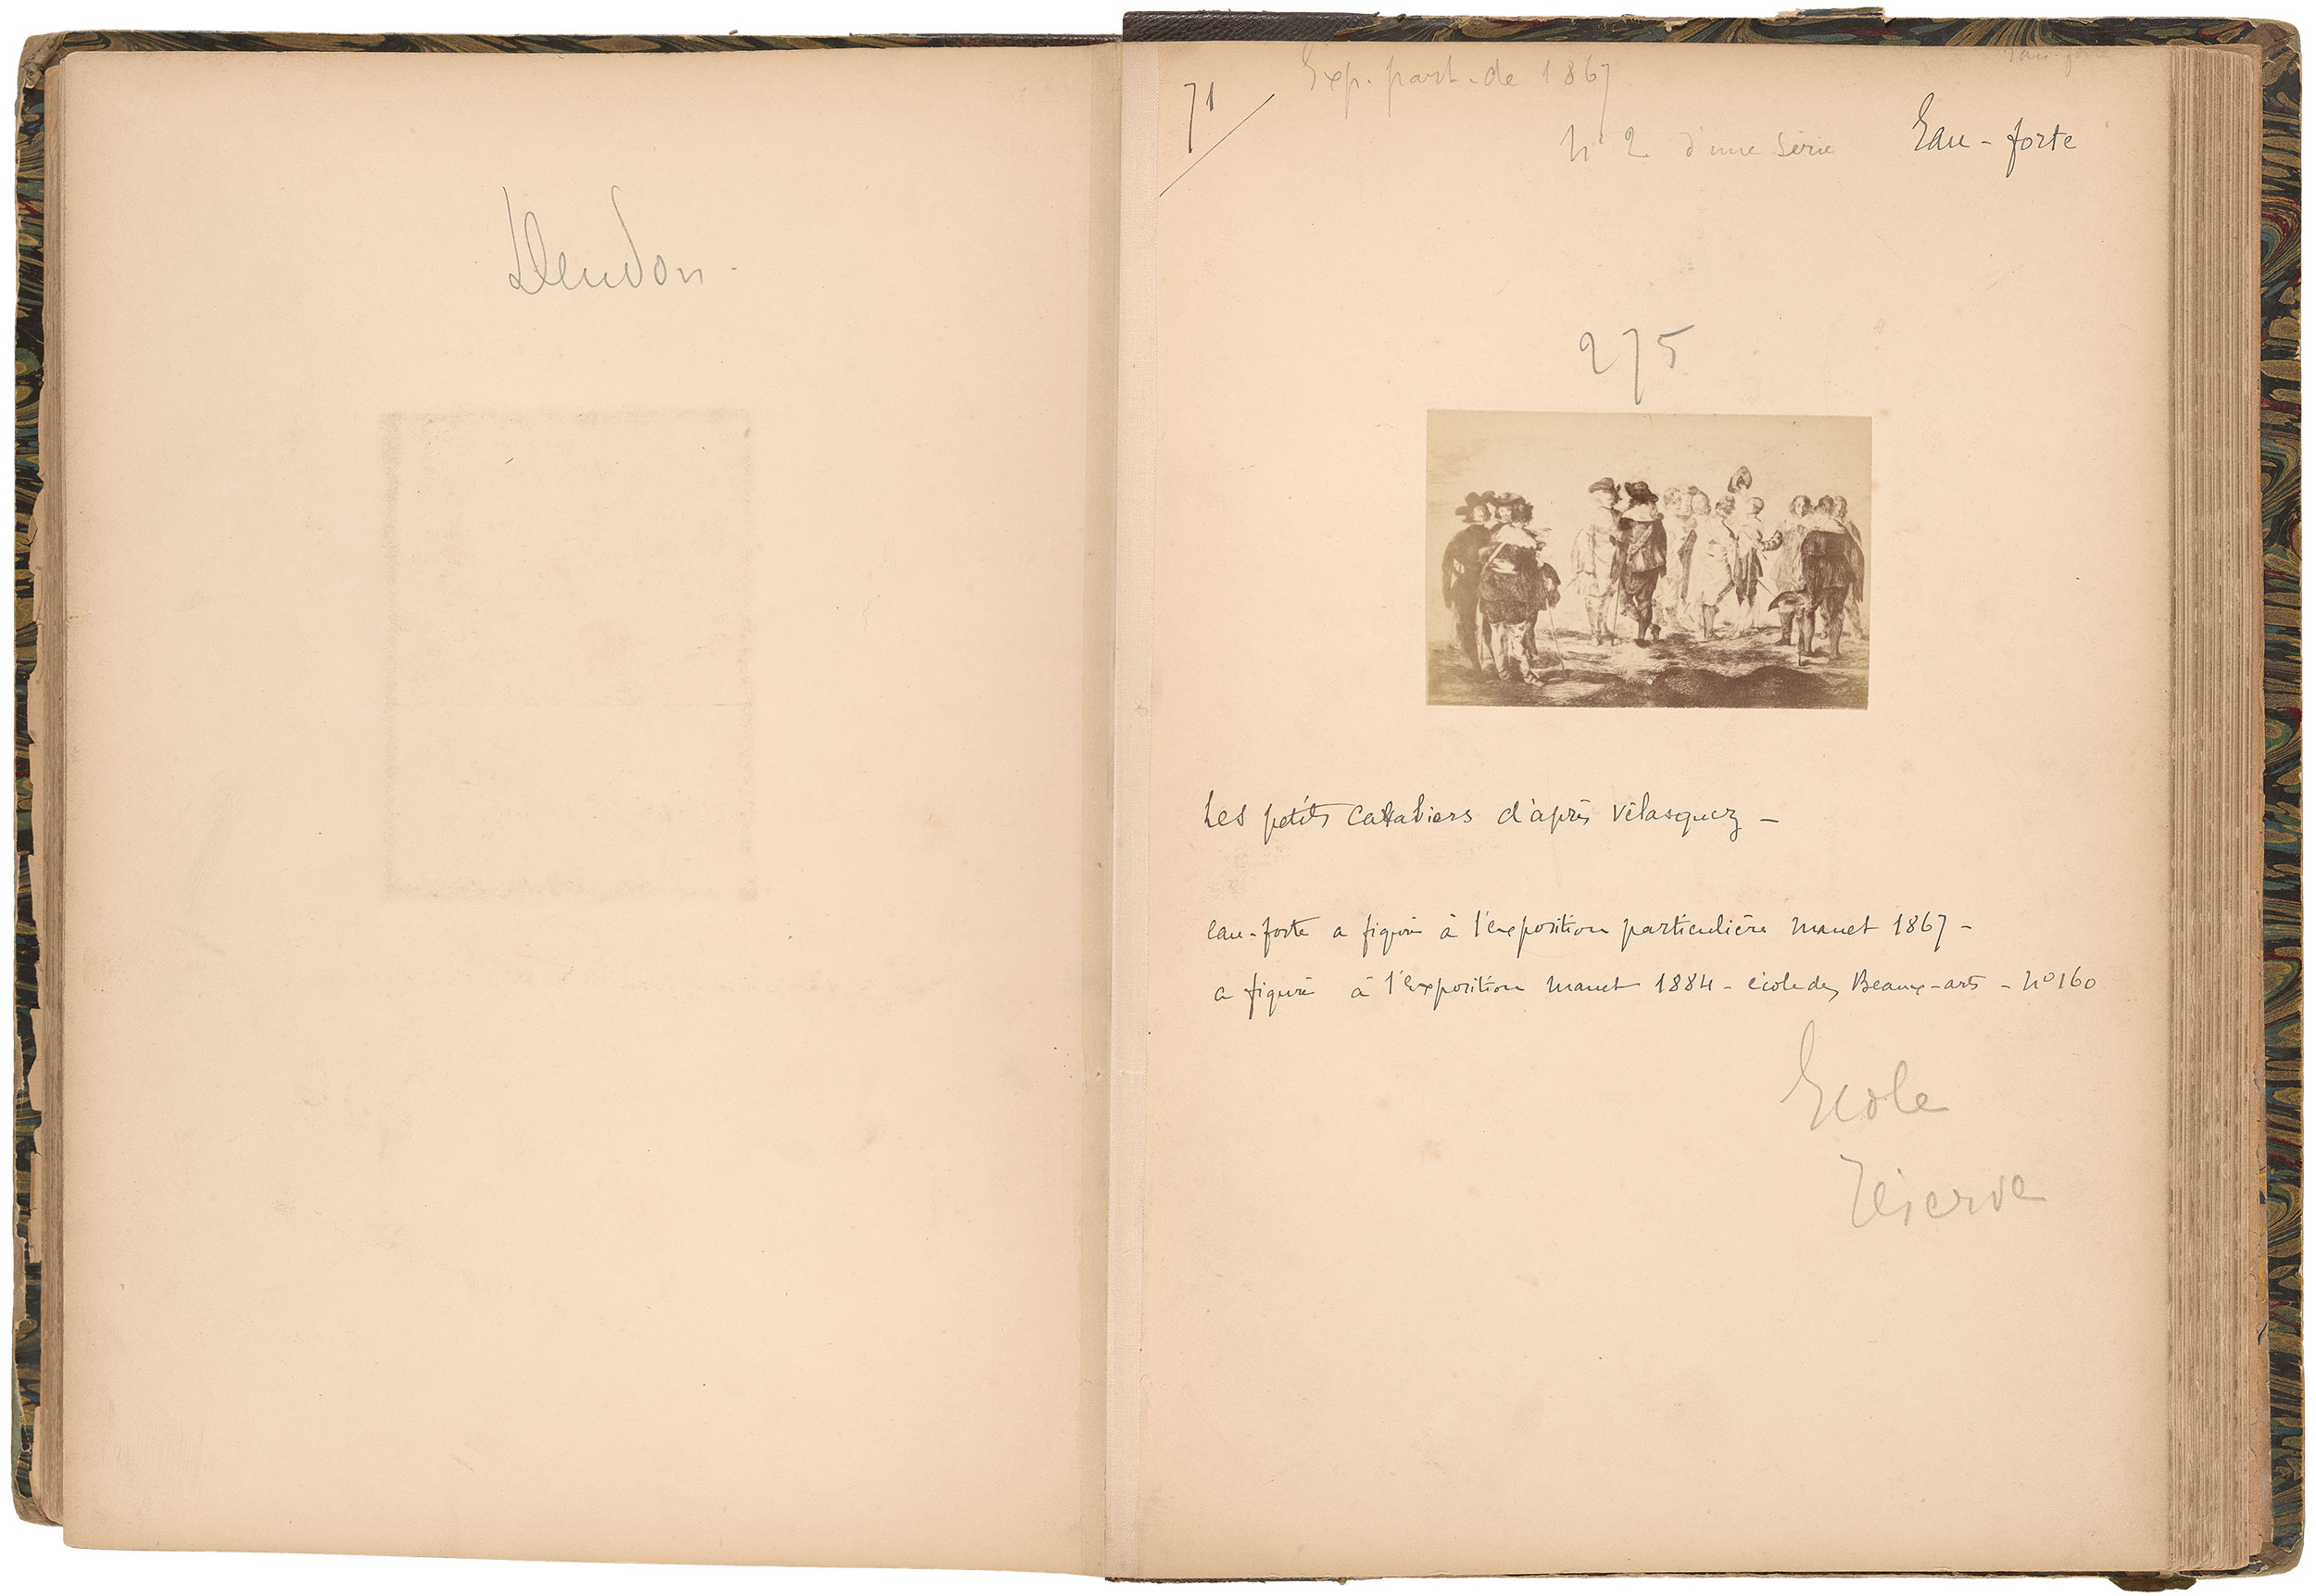 Deudon -
Exp. part. de 1867
71
n° 2 d'une série
Eau-forte
275
Les petits cavaliers d'après Vélasquez -
eau-forte a figuré à l'exposition particulière manet 1867 -
a figuré à l'exposition manet 1884 - école des Beaux-arts - N° 160
Ecole
réserve